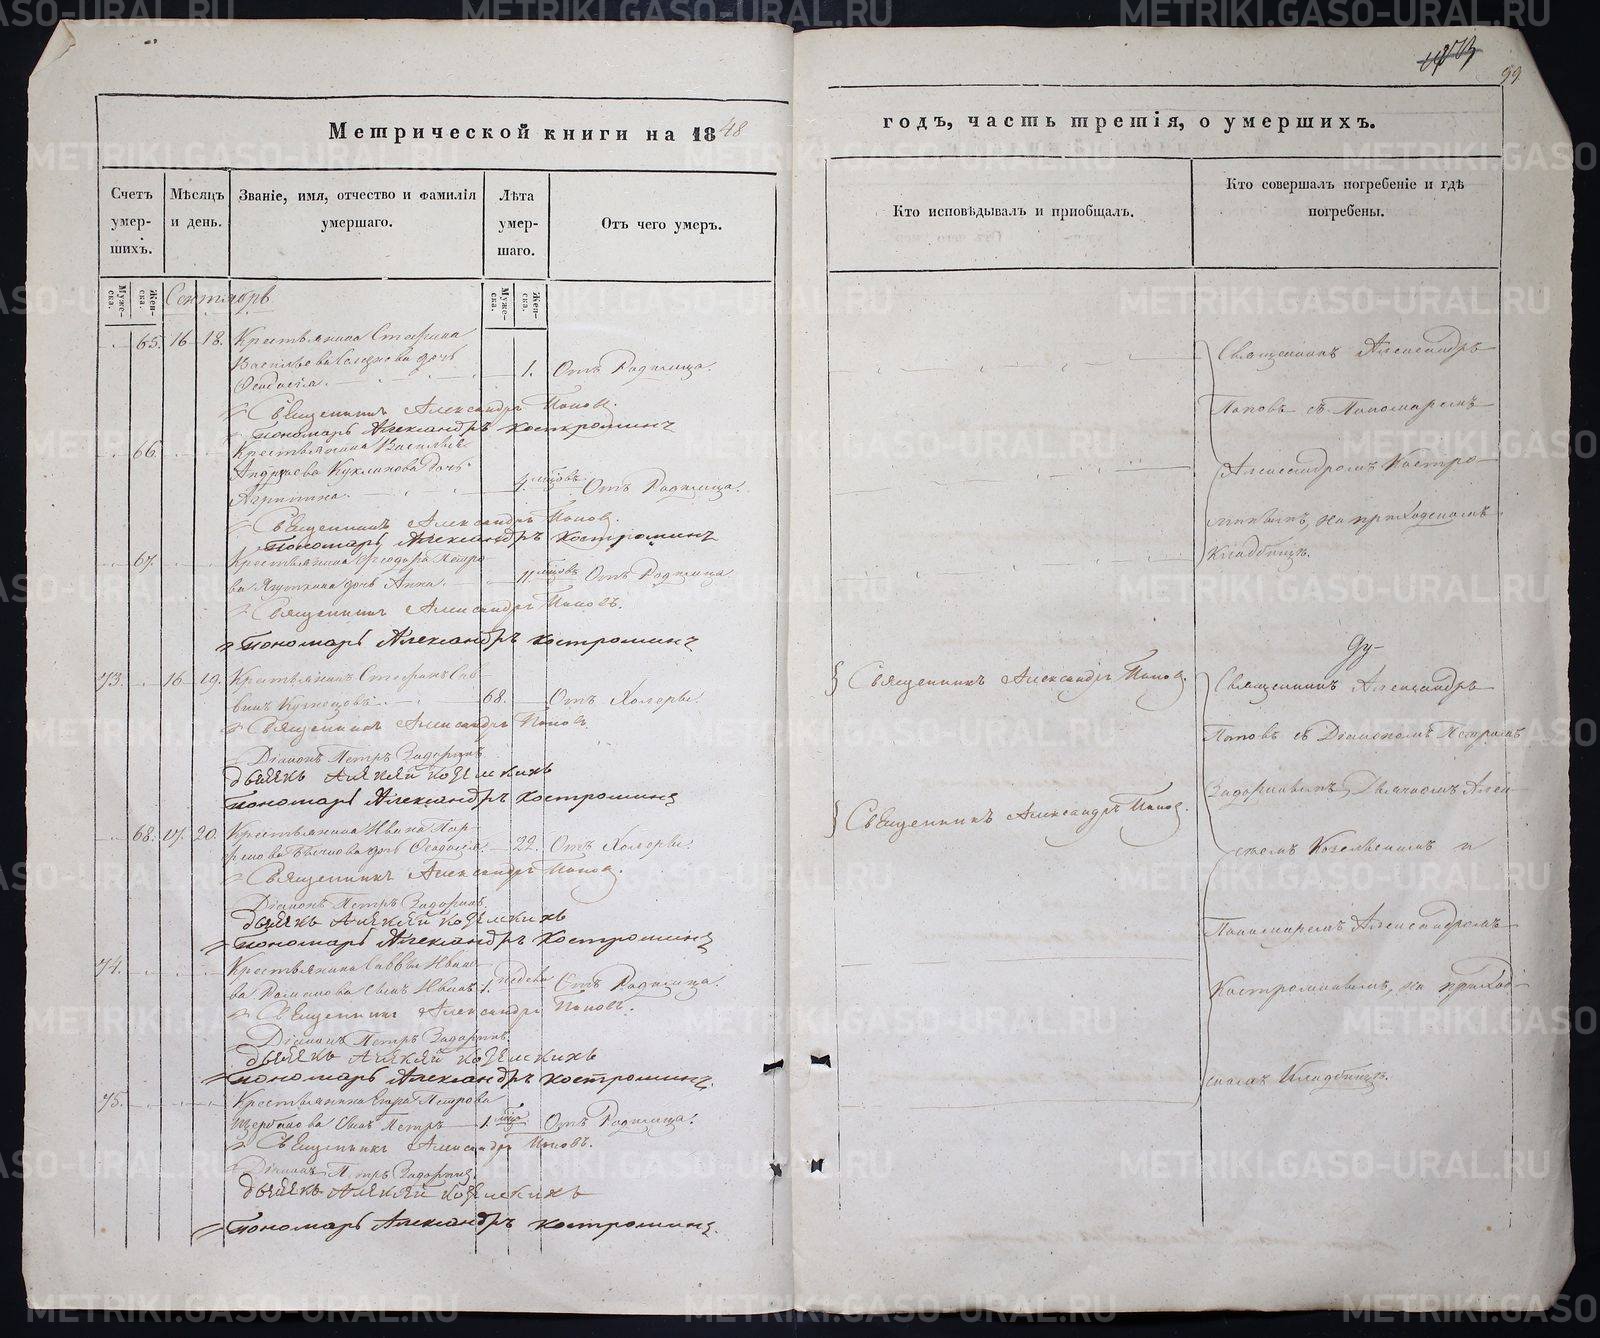 99
Метрической книги на 1848
годъ, часть третія, о умершихъ.
Счетъ умер-шихъ.
Мѣсяцъ и день.
Званіе, имя, отчество и фамилія умершаго.
Лѣта умер-шаго.
Отъ чего умеръ.
Кто исповѣдывалъ и пріобщалъ.
Кто совершалъ погребеніе и гдѣ погребены.
Муже-ска.
Жен-ска.
Муже-ска.
Жен-ска.
Сентябрь
65. 16 18. Крестьянина Стефана
Васильева дочь 1. Отъ Родимца.
Ѳеодосія.
Священникъ Александръ Поповъ.
Пономарь Александръ Костроминъ
66. Крестьянина Василья
Андреева дочь
Агрипина. 4. мѣсцовъ Отъ Родимца.
Священникъ Александръ Поповъ.
Пономарь Александръ Костроминъ
67. Крестьянина Ѳеодора Петро-
ва дочь Анна. 11. мѣсцовъ Отъ Родимца
Священникъ Александръ Поповъ.
Пономарь Александръ Костроминъ
73. 16 19. Крестьянинъ Стефанъ Сав-
винъ Кузнецовъ. 68. Отъ Холеры.
Священникъ Александръ Поповъ
Діаконъ Петръ Задоринъ
Дьячекъ Алексѣй Коземскихъ
Пономарь Александръ Костроминъ
68. 17. 20. Крестьянина Ивана Пор-
дочь Ѳеодосія. 22. Отъ Холеры.
Священникъ Александръ Поповъ.
Діаконъ Петръ Задоринъ.
Дьячекъ Алексѣй Коземскихъ
Пономарь Александръ Костроминъ
74. Крестьянина Саввы Ивано-
ва Романова сынъ Иванъ 1. недели Отъ Родимца.
Священникъ Александръ Поповъ.
Діаконъ Петръ Задоринъ.
Дьячекъ Алексѣй Коземскихъ
Пономарь Александръ Костроминъ.
75. Крестьянина Егора Петрова
Щербакова сынъ Петръ 1. мѣсца Отъ Родимца.
Священникъ Александръ Поповъ.
Діаконъ Петръ Задоринъ.
Дьячекъ Алексѣй Коземскихъ
Пономарь Александръ Костроминъ.
Священникъ Александръ Поповъ.
Священникъ Александръ Поповъ.
Священникъ Александръ
Поповъ съ Пономаремъ
Александромъ Костро-
минымъ, на приходскомъ
Кладбищѣ.
Священникъ Александръ
Поповъ съ Діакономъ Петромъ
Задоринымъ, Дьячкомъ Алек-
сѣемъ Коземскимъ и
Пономаремъ Александромъ
Костроминымъ, на приход-
скомъ Кладбищѣ.
METRIKI.GASO-URAL.RU